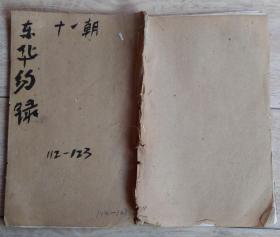 东华约录
十一朝
112-123